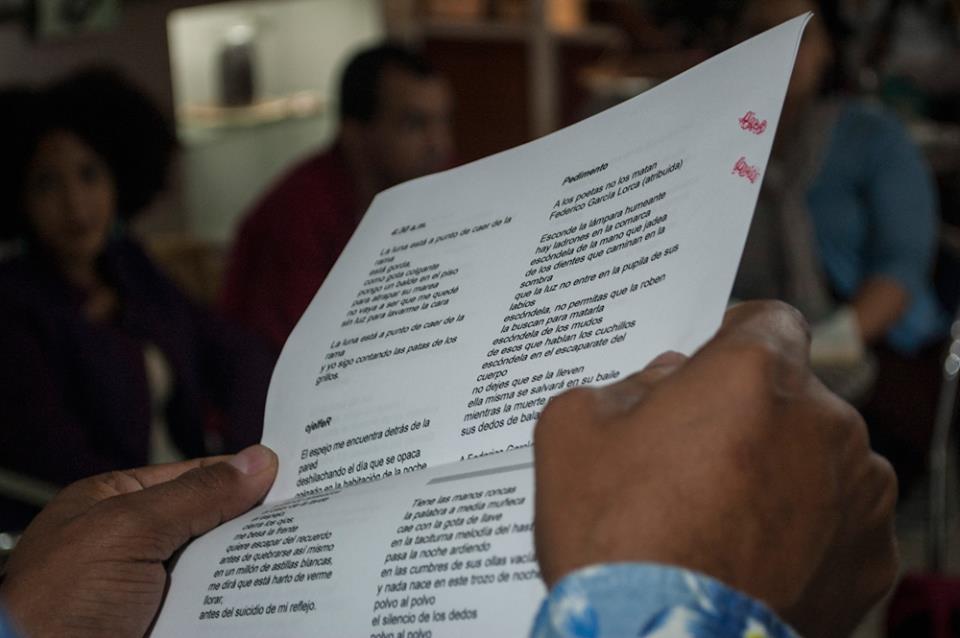 4.30 a.m.
La luna está a punto de caer de la
rama
está gorda,
como gota colgante
pongo un balde en el piso
para atrapar su marea
no vaya a ser que me quedé
sin luz para lavarme la cara
La luna está a punto de caer de la
rama
y yo sigo contando las patas de los
grillos.
ojelfeR
El espejo me encuentra detrás de la
pared
deshilachando el día que se opaca
en la habitación de la noche
cierra los ojos,
me besa la frente
quiere escapar del recuerdo
antes de quebrarse así mismo
en un millón de astillas blancas,
me dirá que está harto de verme
llorar,
antes del suicidio de mi reflejo.
Pedimento
A los poetas no los matan
Federico García Lorca (atribuida)
Esconde la lámpara humeante
hay ladrones en la comarca
escóndela de la mano que jadea
de los dientes que caminan en la
sombra
que la luz no entre en la pupila de sus
labios
escóndela, no permitas que la roben
la buscan para matarla
escóndela de los mudos
de esos que hablan los cuchillos
escóndela en el escaparate del
cuerpo
no dejes que se la lleven
ella misma se salvará en su baile
mientras la muerte
sus dedos de
A Federico
Tiene las manos roncas
la palabra a media muñeca
cae con la gota de llave
en la taciturna melodía del
pasa la noche ardiendo
en las cumbres de sus ollas
y nada nace en este trozo de noche
polvo al polvo
el silencio de los dedos
polvo al polvo